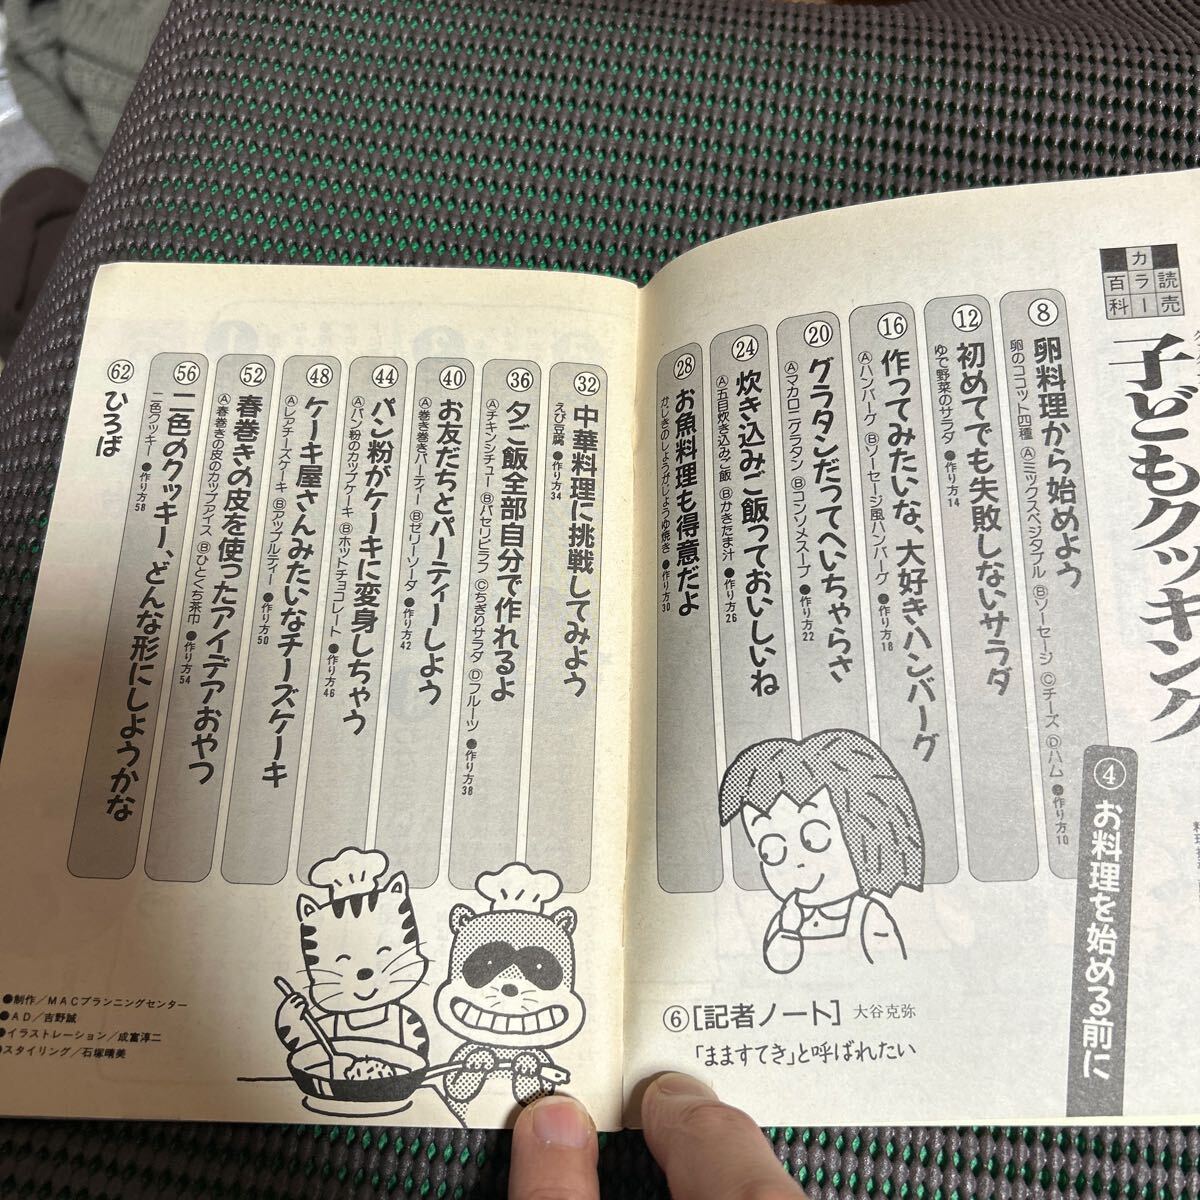 読売
カラー
百科
子どもクッキング
④ お料理を始める前に
⑥ [記者ノート] 大谷克弥
「まますてき」と呼ばれたい
⑧ 卵料理から始めよう
卵のココット四種 Ⓐミックスベジタブル Ⓑソーセージ Ⓒチーズ Ⓓハム ●作り方10
⑫ 初めてでも失敗しないサラダ
ゆで野菜のサラダ ●作り方14
⑯ 作ってみたいな、大好きハンバーグ
Ⓐハンバーグ Ⓑソーセージ風ハンバーグ ●作り方18
⑳ グラタンだってへいちゃらさ
Ⓐマカロニグラタン Ⓑコンソメスープ ●作り方22
㉔ 炊き込みご飯っておいしいね
Ⓐ五目炊き込みご飯 Ⓑかきたま汁 ●作り方26
㉘ お魚料理も得意だよ
かじきのしょうがじょうゆ焼き ●作り方30
㉜ 中華料理に挑戦してみよう
えび豆腐 ●作り方34
㊱ 夕ご飯全部自分で作れるよ
Ⓐチキンシチュー Ⓑパセリピラフ Ⓒちぎりサラダ Ⓓフルーツ ●作り方38
㊵ お友だちとパーティーしよう
Ⓐ巻き巻きパーティー Ⓑゼリーソーダ ●作り方42
㊹ パン粉がケーキに変身しちゃう
Ⓐパン粉のカップケーキ Ⓑホットチョコレート ●作り方46
㊽ ケーキ屋さんみたいなチーズケーキ
Ⓐレアチーズケーキ Ⓑアップルティー ●作り方50
52 春巻きの皮を使ったアイデアおやつ
Ⓐ春巻きの皮のカップアイス Ⓑひとくち茶巾 ●作り方54
56 二色のクッキー、どんな形にしようかな
二色クッキー ●作り方58
62 ひろば
●制作/MACプランニングセンター
●AD/吉野誠
●イラストレーション/成富淳二
●スタイリング/石塚晴美